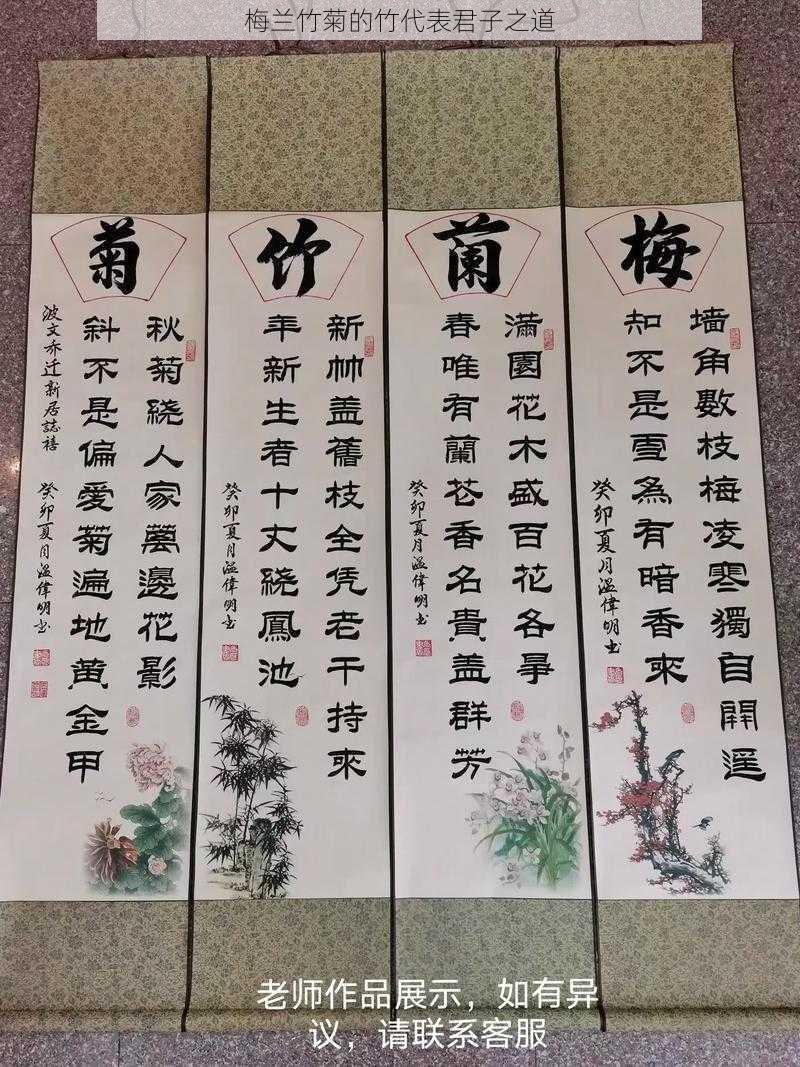 梅兰竹菊的竹代表君子之道
梅
墙角數枝梅凌寒獨自開遥
知不是雪為有暗香來
癸卯夏月温偉明书
蘭
滿園花木盛百花各畢
春唯有蘭花香名貴盖群芳
癸卯夏月温偉明书
竹
新竹盖舊枝全凭老干持來
年新生者十丈繞鳳池
癸卯夏月温偉明书
菊
秋菊繞人家萬邊花影
斜不是偏愛菊遍地黄金甲
波文乔迁新居誌禧
癸卯夏月温偉明书
老师作品展示，如有异
议，请联系客服